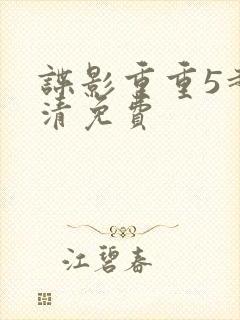 諜影重重5
清免費
江碧春